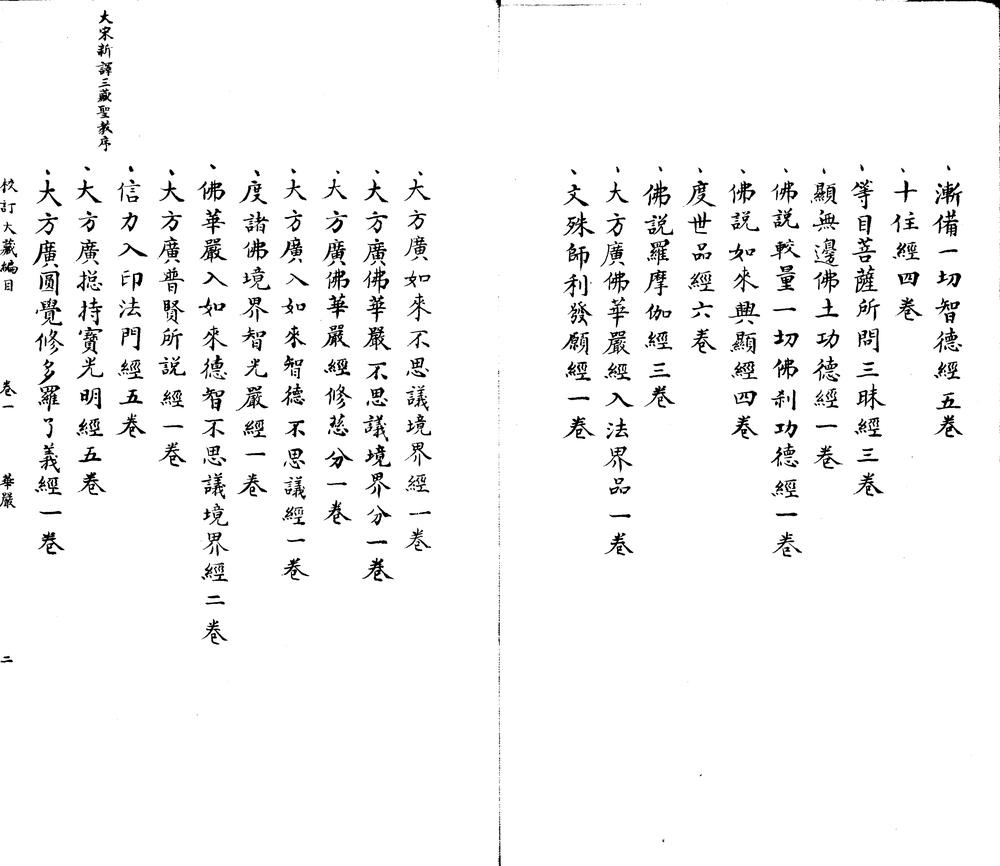 漸備一切智德經五卷
十住經四卷
等目菩薩所問三昧經三卷
顯無邊佛土功德經一卷
佛說較量一切佛刹功德經一卷
佛說如來興顯經四卷
度世品經六卷
佛說羅摩伽經三卷
大方廣佛華嚴經入法界品一卷
文殊師利發願經一卷
大方廣如來不思議境界經一卷
大方廣佛華嚴不思議境界分一卷
大方廣佛華嚴經修慈分一卷
大方廣入如來智德不思議經一卷
度諸佛境界智光嚴經一卷
佛華嚴入如來德智不思議境界經二卷
大方廣普賢所說經一卷
信力入印法門經五卷
大宋新譯三藏聖教序
大方廣揔持寶光明經五卷
大方廣圓覺修多羅了義經一卷
校訂大藏編目 卷一 華嚴 二